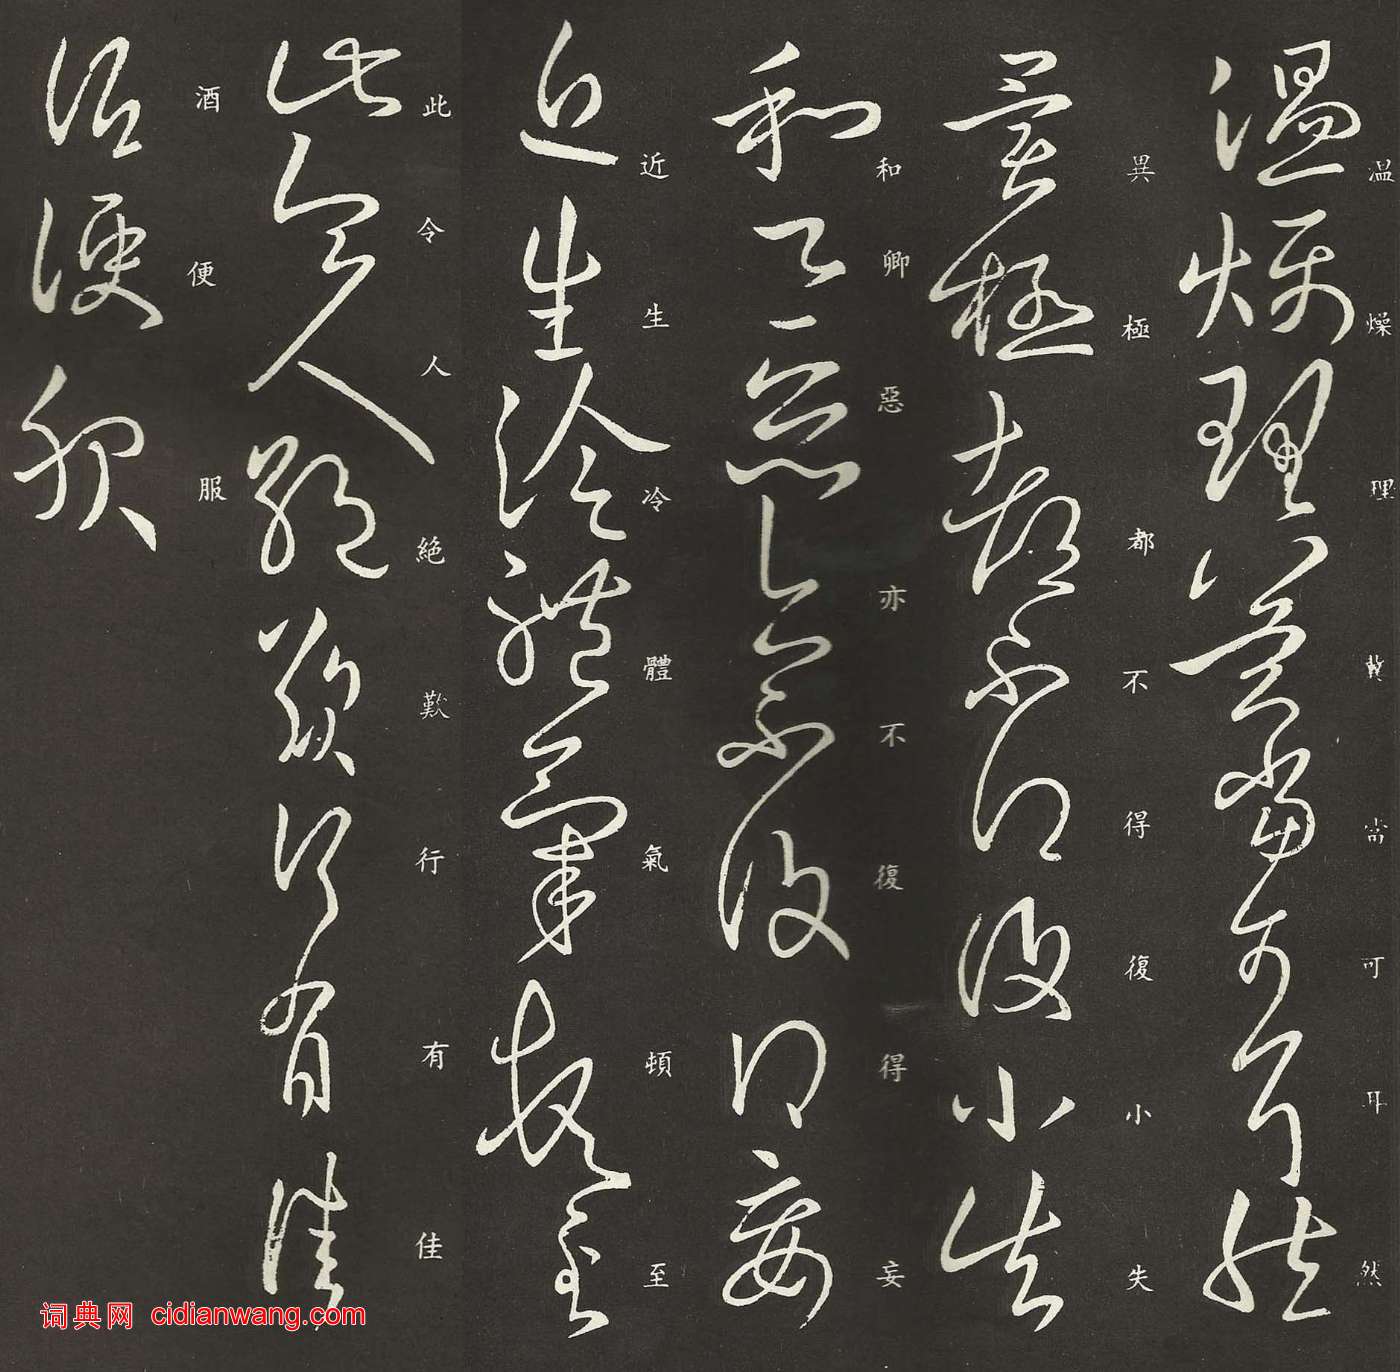 温燥理當可耳然
異極都不得復小失
和卿惡亦不復得妄
近生冷體氣頓至
此令人絕歎行有佳
酒便服
词典网 cidianwang.com